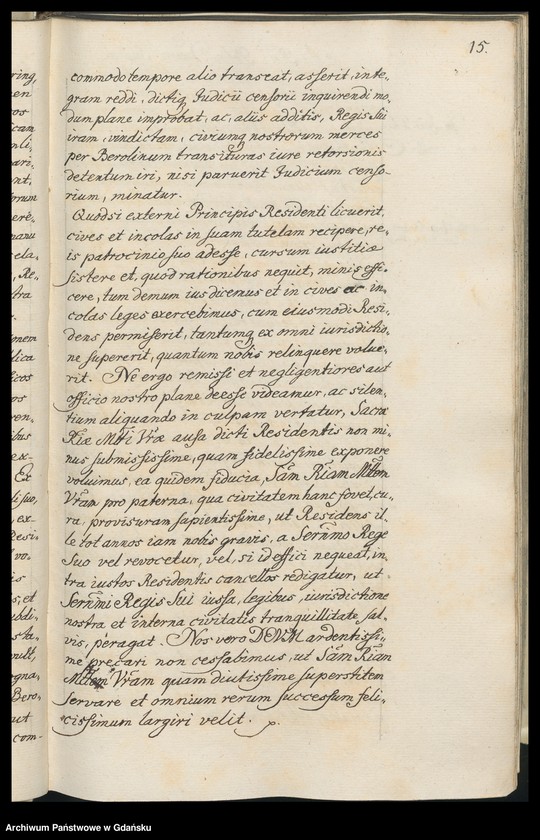 15.
commodo tempore alio transeat, asserit, inte-
gram reddi, dictiq Judicii censorii inquirendi mo-
dum plane improbat, ac, aliis additis, Regis Sui
iram, vindictam, civiumq nostrorum merces
per Berolinum transituras iure retorsionis
detentum iri, nisi paruerit Judicium censo-
rium, minatur.
Quodsi externi Principis Residenti licuerit,
cives et incolas in suam tutelam recipere, re-
is patrocinio suo adesse, cursum iustitiæ
sistere et, quod rationibus nequit, minis effi-
cere, tum demum ius dicemus et in cives ac in-
colas leges exercebimus, cum eiusmodi Resi-
dens permiserit, tantumq ex omni iurisdictio-
ne supererit, quantum nobis relinquere volue-
rit. Ne ergo remissi et negligentiores aut
officio nostro plane deesse videamur, ac silen-
tium aliquando in culpam vertatur, Sacræ
Riæ Mtti Vræ ausa dicti Residentis non mi-
nus submississime, quam fidelissime exponere
voluimus, ea quidem fiducia, Sam Riam Mttem
Vram pro paterna, qua civitatem hanc fovet, cu-
ra, provisuram sapientissime, ut Residens il-
le tot annos iam nobis gravis, a Serenmo Rege
Suo vel revocetur, vel, si id effici nequeat, in-
tra iustos Residentis cancellos redigatur, ut
Serenmi Regis Sui iussa, legibus, iurisdictione
nostra et interna civitatis tranquillitate sal-
vis, peragat. Nos vero DEVM ardentissi-
me precari non cessabimus, ut Sam Riam
Mttem Vram quam diutissime superstitem
servare et omnium rerum successum feli-
cissimum largiri velit.
ring
en
os
cam
nli,
ari-
nt,
orum
erè-
manu
cela-
Re-
tra
onem
lica
icos
os
ren-
ibus
ex-
Ex
li suo,
ex-
Resi-
vo-
is
s, et
ubdi-
sta-
ult,
gna-
Bero-
ut
com-
Archiwum Państwowe w Gdańsku